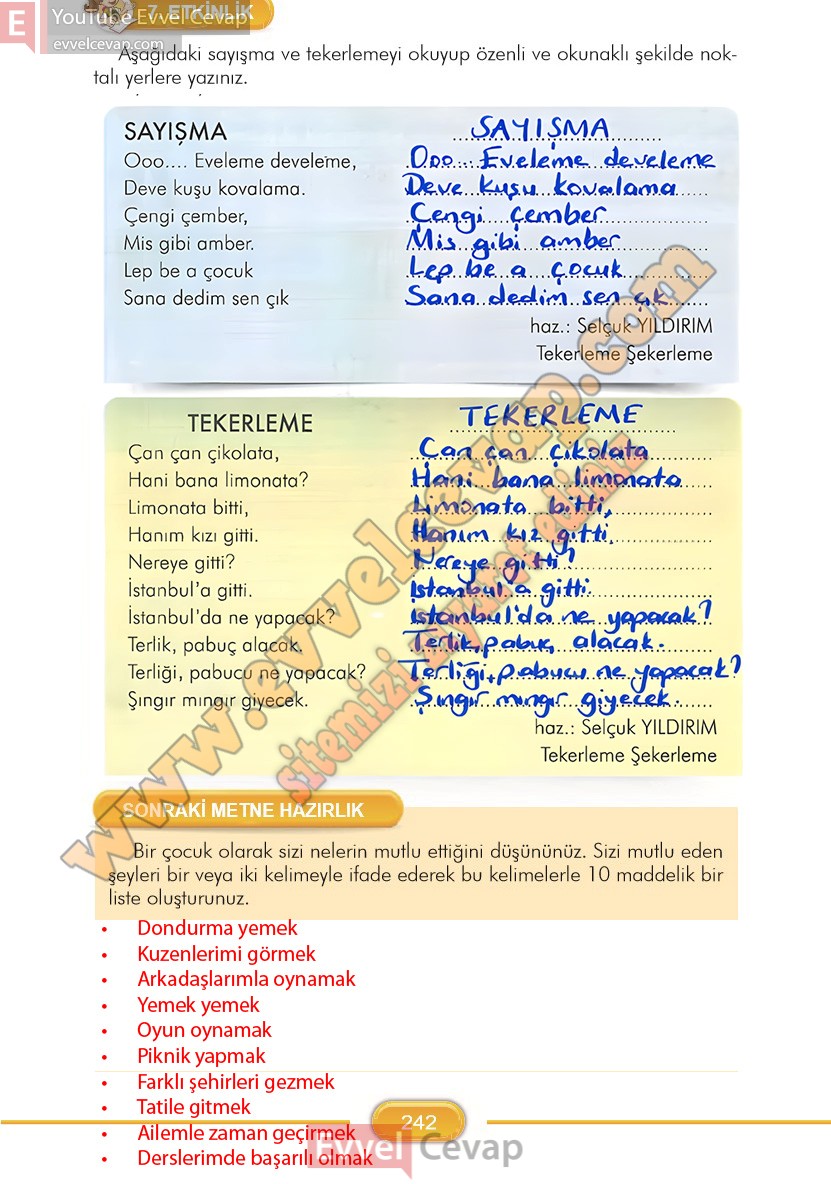 7. ETKİNLİK
E YouTube Evvel Cevap
evvelcevap.com
Aşağıdaki sayışma ve tekerlemeyi okuyup özenli ve okunaklı şekilde nok-
talı yerlere yazınız.
SAYIŞMA
Ooo.... Eveleme develeme,
Deve kuşu kovalama.
Çengi çember,
Mis gibi amber.
Lep be a çocuk
Sana dedim sen çık
SAYIŞMA
Ooo... Eveleme develeme
Deve kuşu kovalama
Çengi çember
Mis gibi amber
Lep be a çocuk
Sana dedim sen çık
haz.: Selçuk YILDIRIM
Tekerleme Şekerleme
TEKERLEME
Çan çan çikolata,
Hani bana limonata?
Limonata bitti,
Hanım kızı gitti.
Nereye gitti?
İstanbul'a gitti.
İstanbul'da ne yapacak?
Terlik, pabuç alacak.
Terliği, pabucu ne yapacak?
Şıngır mıngır giyecek.
TEKERLEME
Çan çan çikolata
Hani bana limonata
Limonata bitti,
Hanım kız gitti.
Nereye gitti?
İstanbul'a gitti.
İstanbul'da ne yapacak?
Terlik, pabuç alacak.
Terliği, pabucu ne yapacak?
Şıngır mıngır giyecek.
haz.: Selçuk YILDIRIM
Tekerleme Şekerleme
www.evvelcevap.com
sitemizi ziyaret ediniz
SONRAKİ METNE HAZIRLIK
Bir çocuk olarak sizi nelerin mutlu ettiğini düşününüz. Sizi mutlu eden
şeyleri bir veya iki kelimeyle ifade ederek bu kelimelerle 10 maddelik bir
liste oluşturunuz.
• Dondurma yemek
• Kuzenlerimi görmek
• Arkadaşlarımla oynamak
• Yemek yemek
• Oyun oynamak
• Piknik yapmak
• Farklı şehirleri gezmek
• Tatile gitmek
• Ailemle zaman geçirmek
• Derslerimde başarılı olmak
242
Evvel Cevap